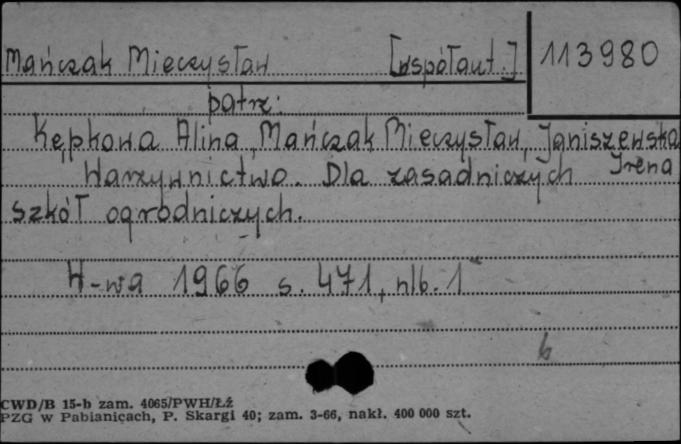 Mańczak Mieczysław [współaut.] 113980
patrz:
Kępkowa Alina, Mańczak Mieczysław, Janiszewska
Warzywnictwo. Dla zasadniczych Irena
szkół ogrodniczych.
W-wa 1966 s. 471, nlb. 1
b
CWD/B 15-b zam. 4065/PWH/Łź
PZG w Pabianicach, P. Skargi 40; zam. 3-66, nakł. 400 000 szt.